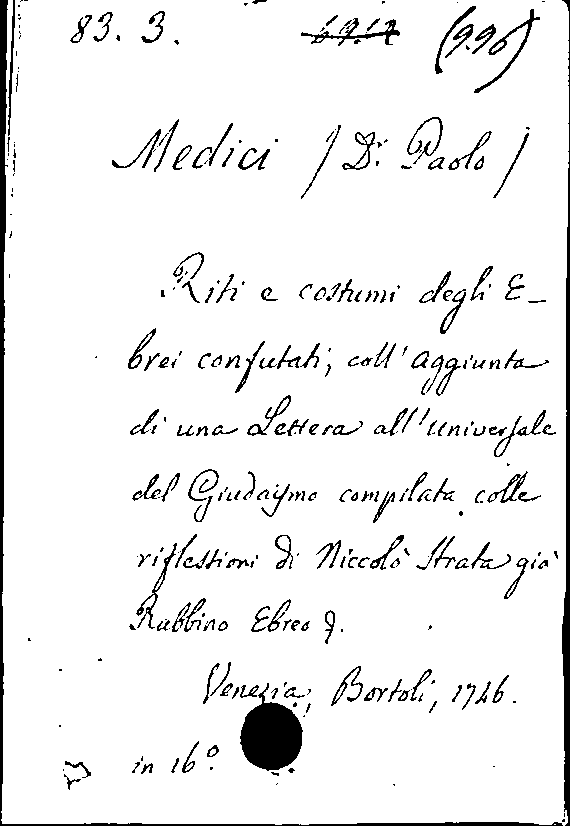 83. 3. 69.12 (996)
Medici / Dr. Paolo /
Riti e costumi degli E-
brei confutati, coll'aggiunta
di una Lettera all'universale
del Giudaismo compilata colle
riflessioni di Niccolò Strata già
Rabbino Ebreo &.
Venezia, Bortoli, 1746.
in 16°.